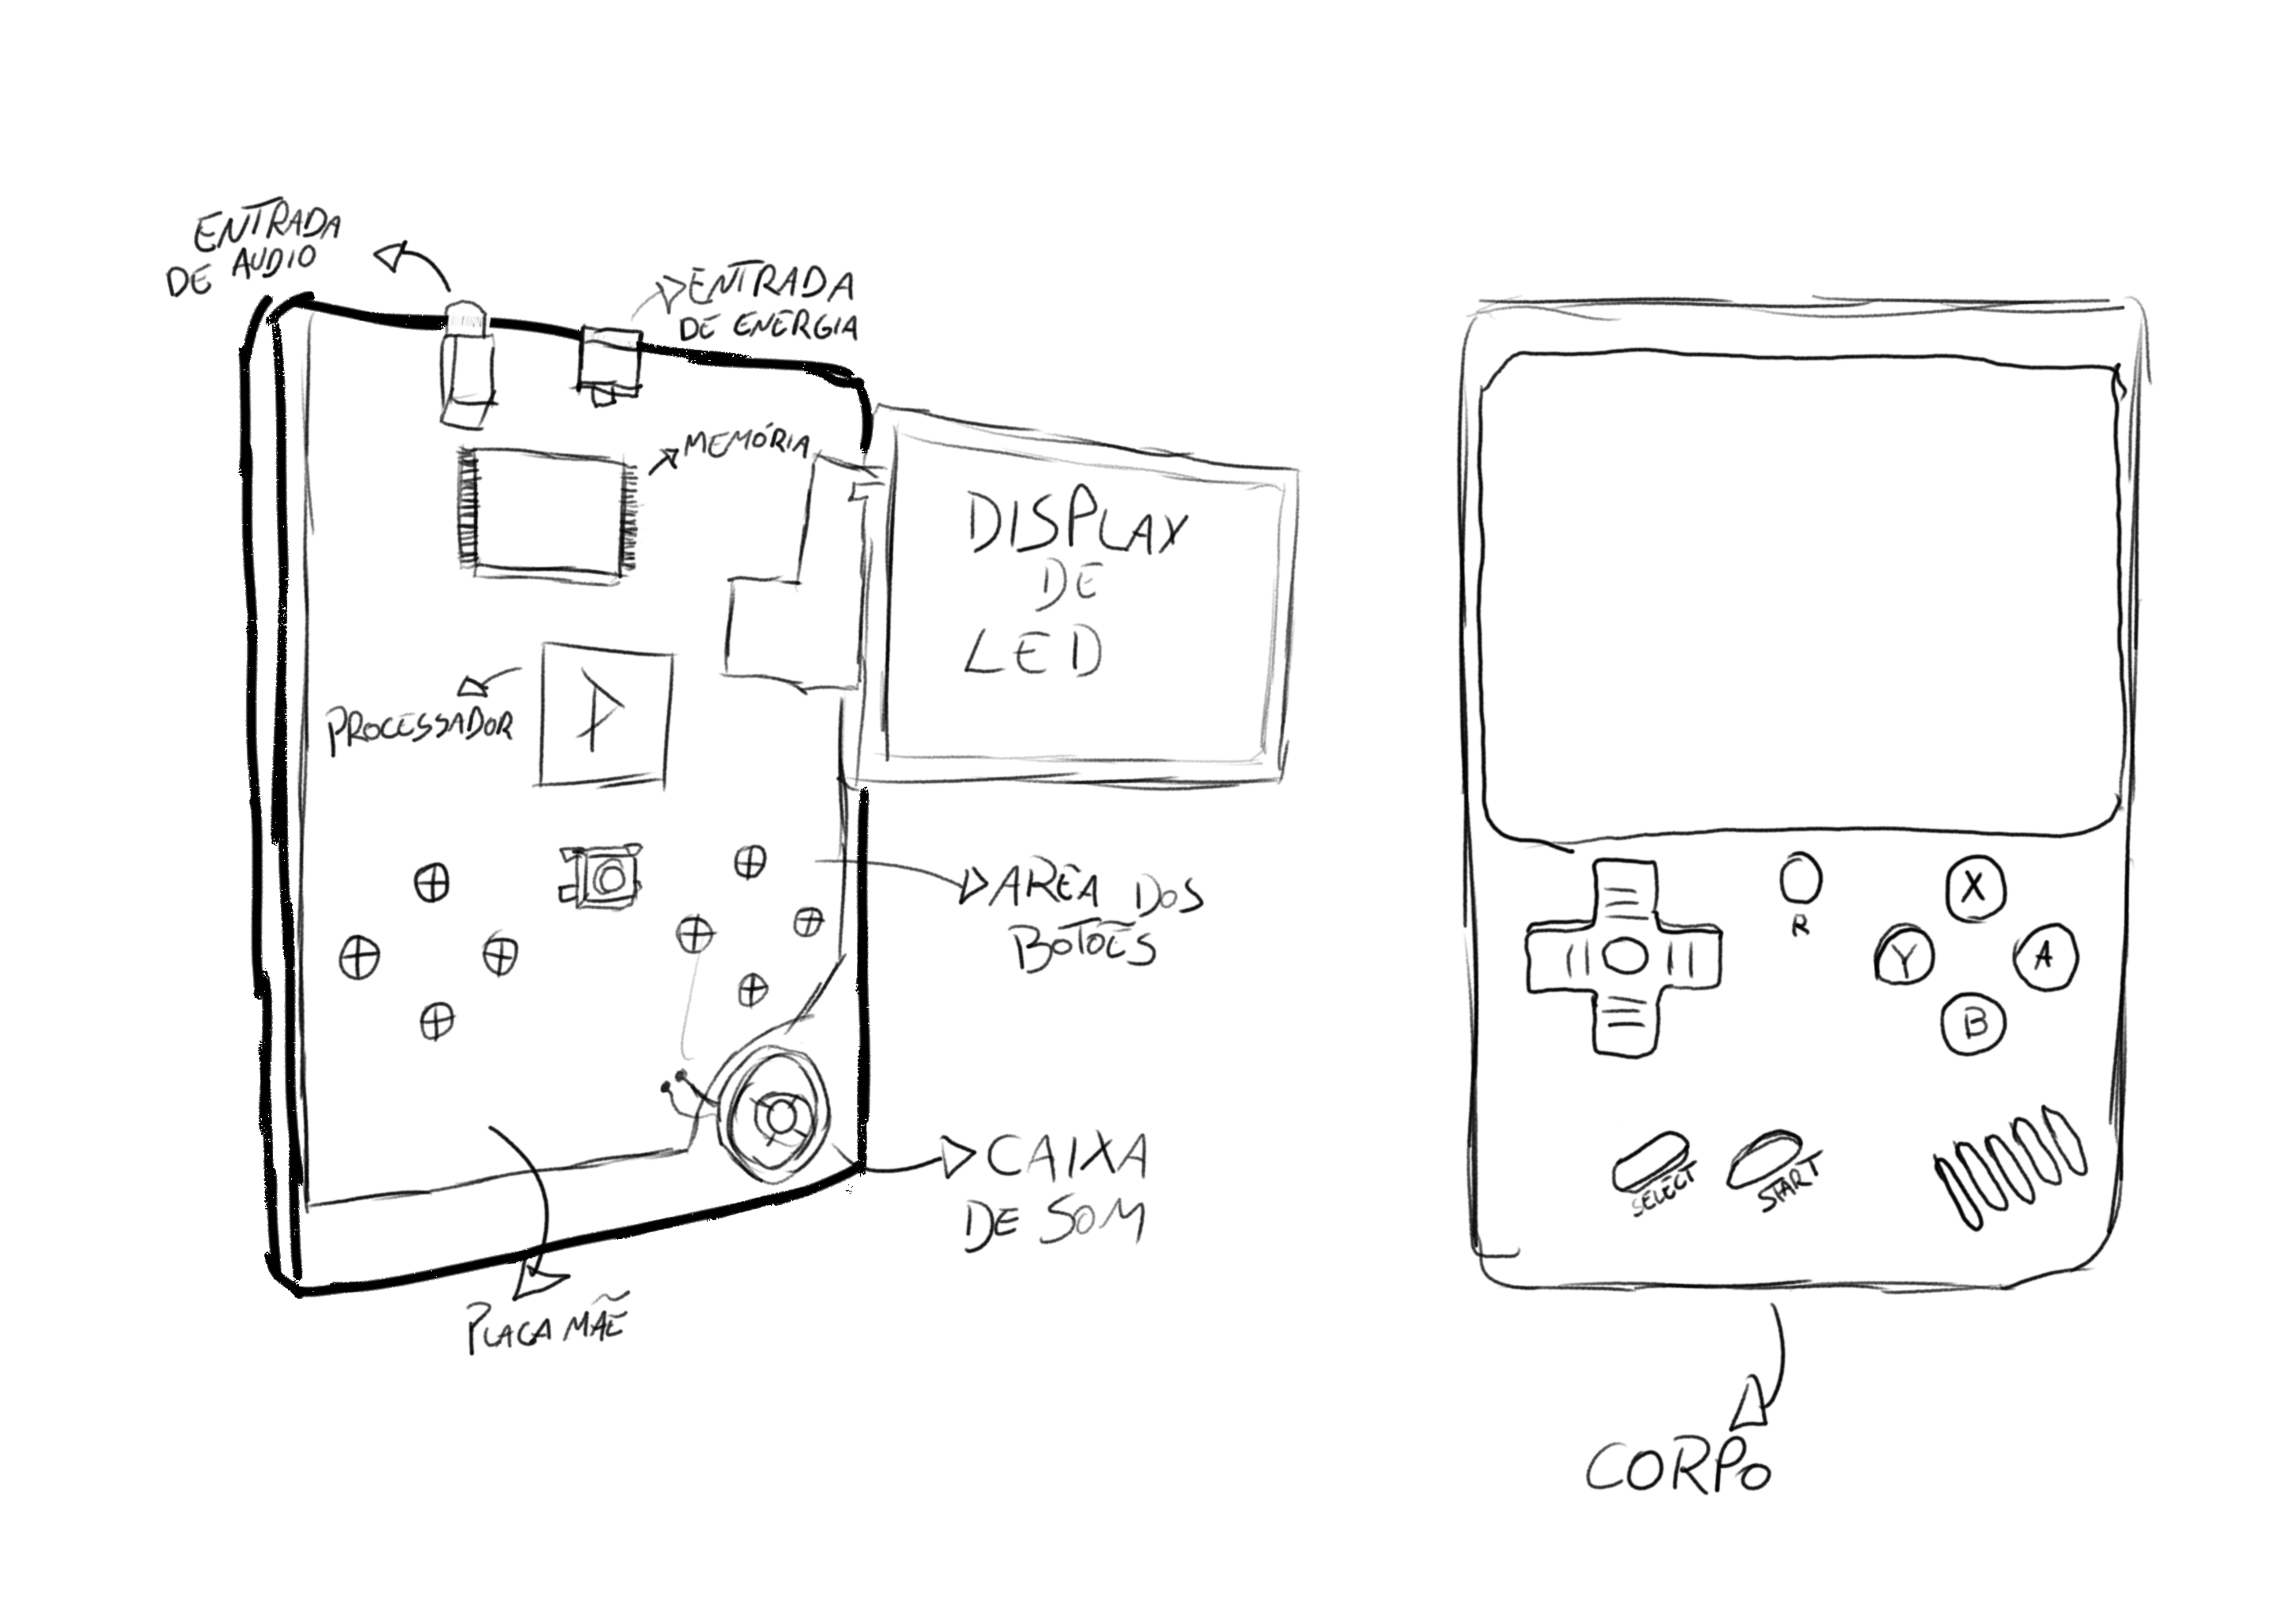 ENTRADA
DE AUDIO
ENTRADA
DE ENERGIA
MEMÓRIA
DISPLAY
DE
LED
P
PROCESSADOR
AREA DOS
BOTOẼS
CAIXA
DE SOM
PLACA MÃE
R
X
Y
A
B
SELECT
START
CORPO